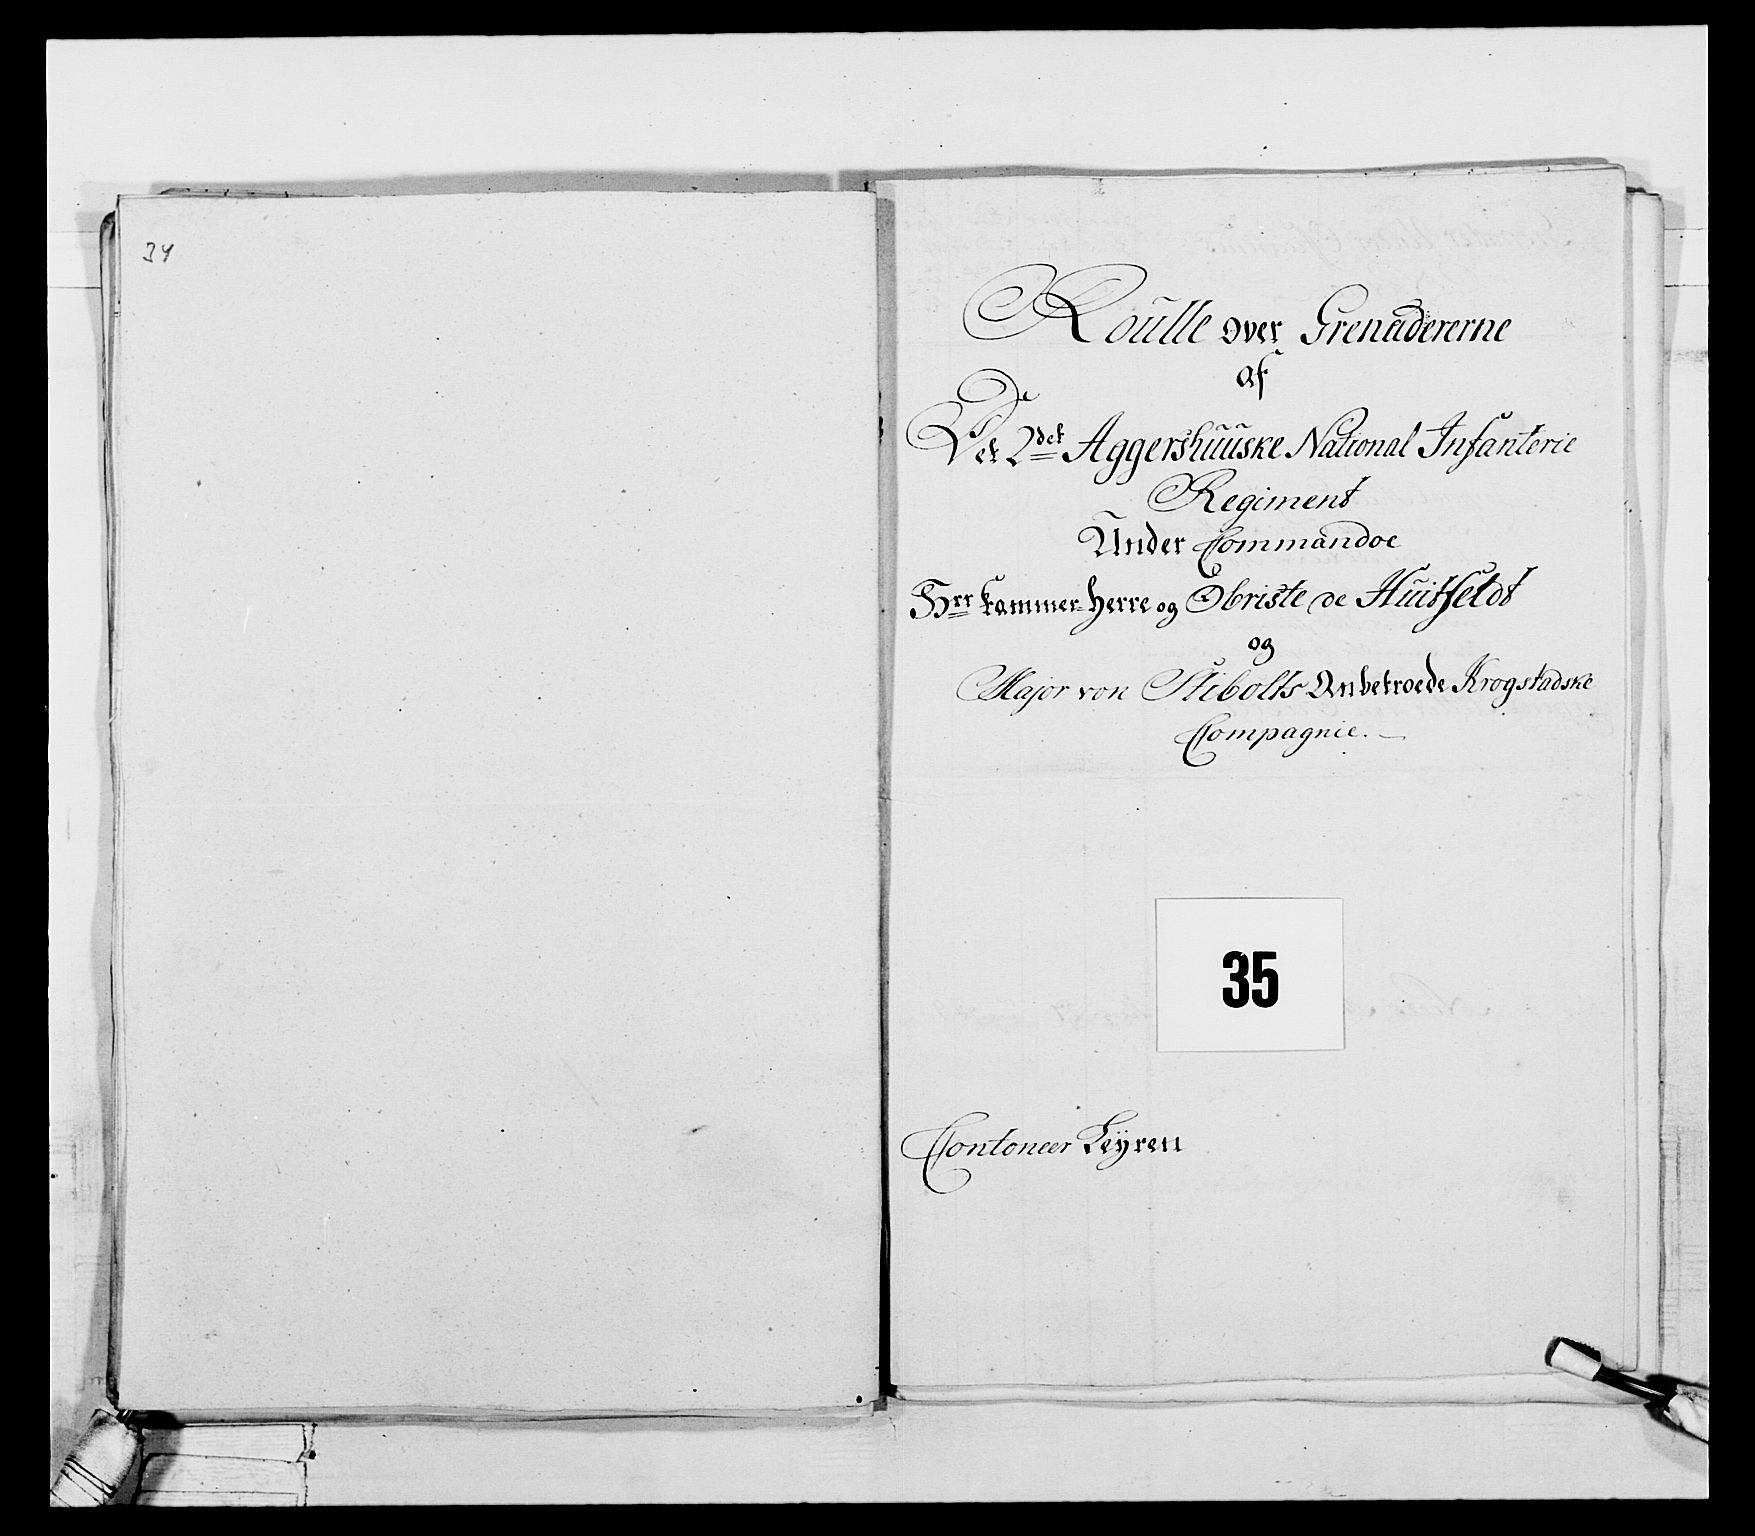 34
Roulle over Grenadererne
af
Det 2det Aggershuuske National Infanterie
Regiment
Under Commandoe
Hrr Kammer-Herre og Obriste de Huitfeldt
og
Major von Stibolts Anbetroede Krogstadske
Compagnie.
35
Contoneer Leÿren